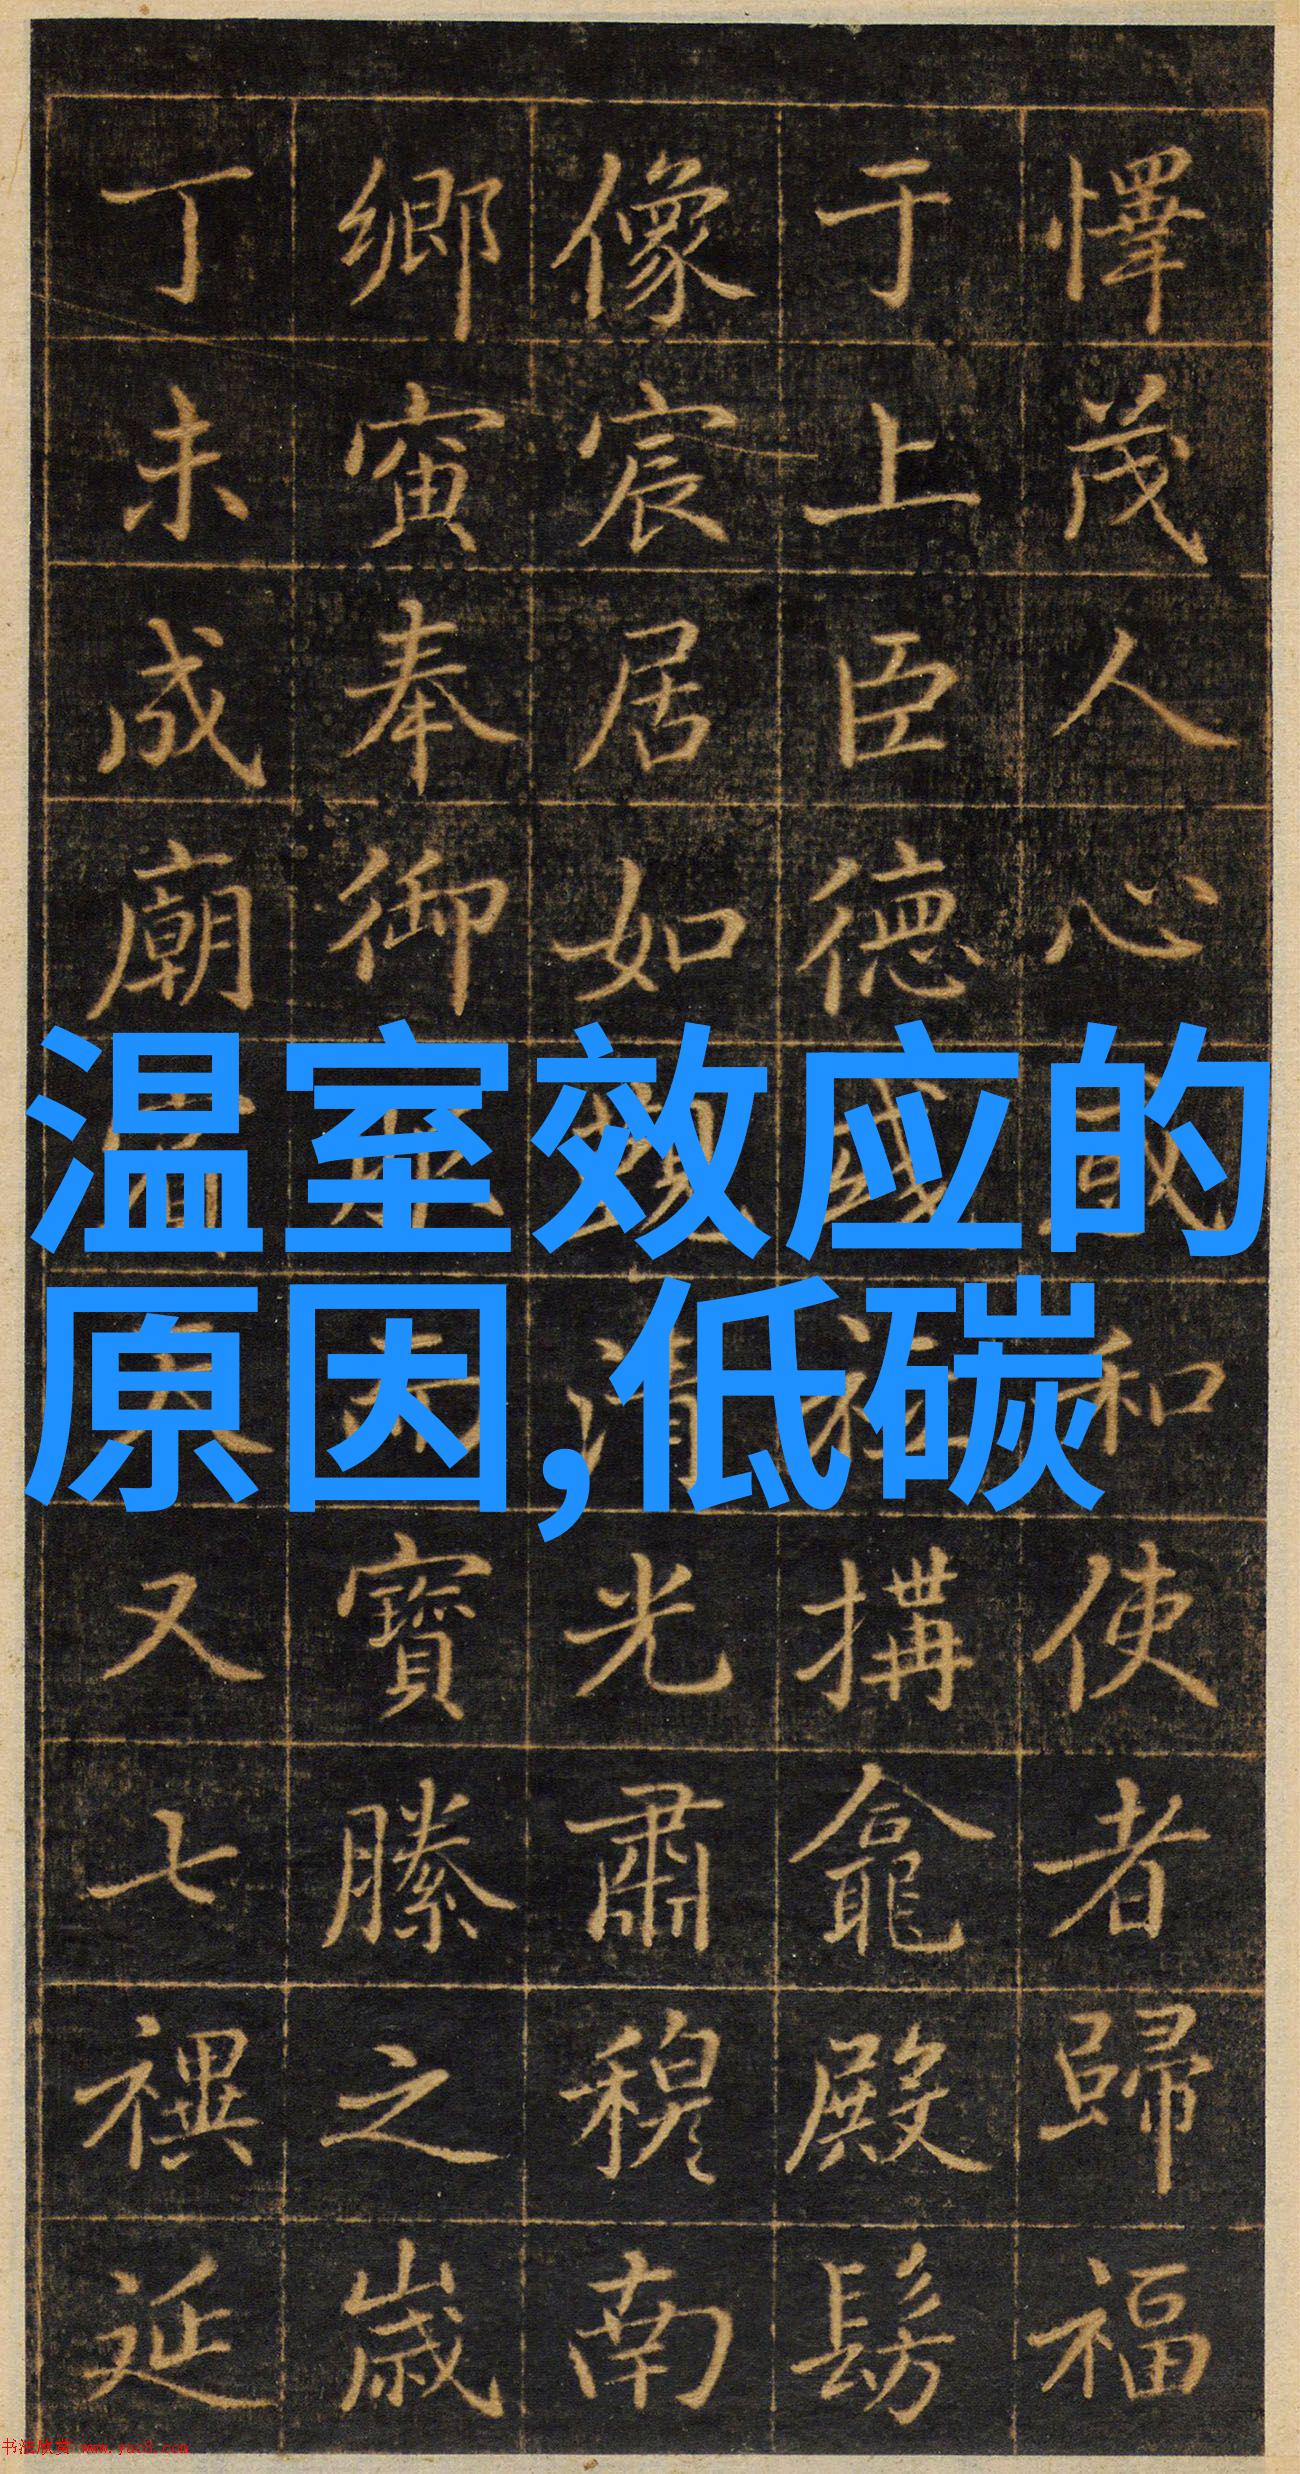 懌茂人心咸和使者歸福
于上臣德社搆龕殿髣
像宸居如清光肅穆南
鄉寅奉御寶縢之歲
丁未成廟又七禩延
温室效应的
原因,低碳
书法欣赏 www.yac8.com